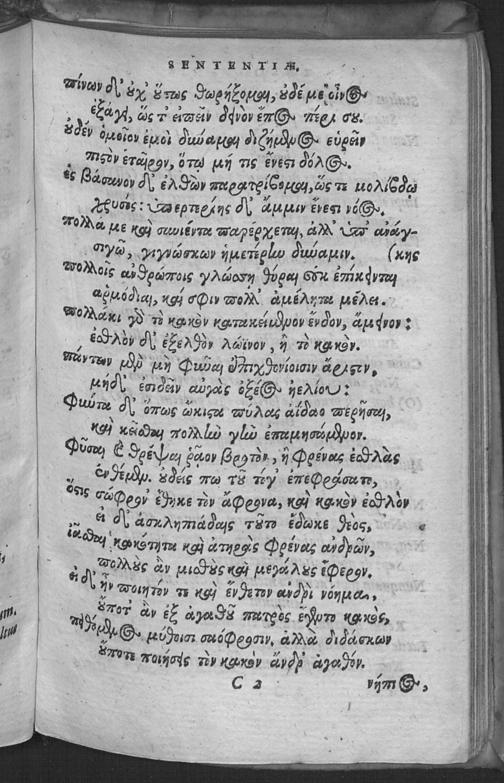 SENTENTIÆ.
πίνων δ' οὐχ οὕτως θωρήξομαι, οὐδέ με οἶνος
ἐξάγει, ὥς τ' εἰπεῖν δεινὸν ἔπος περὶ σου.
οὐδέν ὁμοῖον ἐμοὶ δύναμαι διζήμενος εὑρεῖν
πιστὸν ἑταῖρον, ὅτῳ μή τις ἔνεστι δόλος.
ἐς βάσανον δ' ἐλθὼν παρατρίβομαι, ὥς τε μολίβδῳ
χρυσός: ὑπερτερίης δ' ἄμμιν ἔνεστι νόος.
πολλά με καὶ συνιέντα παρέρχεται, ἀλλ' ὑπ' ἀνάγ-
σιγῶ, γιγνώσκων ἡμετέρην δύναμιν. (κης
πολλοῖς ἀνθρώποις γλώσσῃ θύραι οὐκ ἐπίκεινται
ἁρμόδιαι, καί σφιν πολλ' ἀμέλητα μέλει.
πολλάκι γὰρ τὸ κακὸν κατακείμενον ἔνδον, ἄμεινον:
ἐσθλὸν δ' ἐξελθὸν λώϊνον, ἢ τὸ κακόν.
πάντων μὲν μὴ φῦναι ἐπιχθονίοισιν ἄριστν,
μήδ' ἐσιδεῖν αὐγὰς ὀξέος ἠελίου:
Φύντα δ' ὅπως ὤκιστα πύλας ἀΐδαο περῆσαι,
καὶ κεῖσθαι πολλὴν γῆν ἐπαμησάμενον.
Φῦσαι καὶ θρέψαι ῥᾷον βροτὸν, ἢ φρένας ἐσθλὰς
ἐνθέμεν. οὐδείς πω τοῦτό γ' ἐπεφράσατο,
ὅστις σώφρον' ἔθηκε τὸν ἄφρονα, καὶ κακὸν ἐσθλὸν
εἰ δ' ἀσκληπιάδαις τοῦτο ἔδωκε θεὸς,
ἰᾶσθαι κακότητα καὶ ἀτηρὰς φρένας ἀνδρῶν,
πολλοὺς ἂν μισθοὺς καὶ μεγάλους ἔφερον.
εἰ δ' ἦν ποιητόν τε καὶ ἔνθετον ἀνδρὶ νόημα,
οὔποτ' ἂν ἐξ ἀγαθοῦ πατρὸς ἔγεντο κακὸς,
πειθόμενος μύθοισι σαόφροσιν, ἀλλὰ διδάσκων
οὔποτε ποιήσεις τὸν κακὸν ἄνδρ' ἀγαθόν.
C 2 νήπιος,